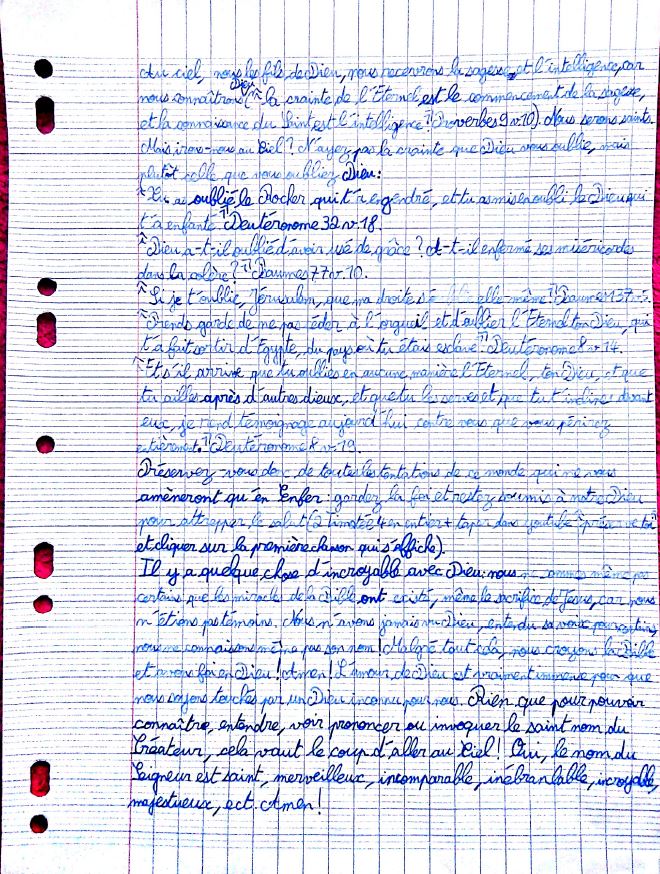 Au ciel, nous les fils de Dieu, nous recevrons la sagesse et l'intelligence, car
nous connaîtrons Dieu ("la crainte de l'Eternel est le commencement de la sagesse,
et la connaissance du Saint est l'intelligence" (Proverbes 9 v.10). Nous serons saints.
Mais irons-nous au Ciel? N'ayez pas la crainte que Dieu vous oublie, mais
plutôt celle que vous oubliez Dieu:
"Tu as oublié le Rocher qui t'a engendré, et tu as mis en oubli le Dieu qui
t'a enfanté" Deutéronome 32 v.18.
"Dieu a-t-il oublié d'avoir usé de grâce? A-t-il enfermé ses miséricordes
dans la colère?" Psaumes 77 v.10.
"Si je t'oublie, Jérusalem, que ma droite s'é elle-même!" Psaume 137 v.5.
"Prends garde de ne pas céder à l'orgueil et d'oublier l'Eternel ton Dieu, qui
t'a fait sortir d'Egypte, du pays où tu étais esclave" Deutéronome 8 v.14.
"Et s'il arrive que tu oublies en aucune manière l'Eternel, ton Dieu, et que
tu ailles après d'autres dieux, et que tu les serves et que tu t'inclines devant
eux, je rend témoignage aujourd'hui contre vous que vous périrez
entièrement." Deutéronome 8 v.19.
Préservez-vous donc de toutes les tentations de ce monde qui ne vous
amèneront qu'en Enfer: gardez la foi et restez soumis à notre Dieu
pour attrapper le salut (2 Timotée 4 en entier + taper dans youtube "préserve toi"
et cliquer sur la première chanson qui s'affiche).
Il y a quelque chose d'incroyable avec Dieu: nous n sommes même pas
certains que les miracles de la Bible ont existé, même le sacrifice de Jesus, car nous
n'étions pas témoins. Nous n'avons jamais vu Dieu, entendu sa voix pour certains,
nous ne connaissons même pas son nom! Malgré tout cela, nous croyons la Bible
et avons foi en Dieu! Amen! L'amour de Dieu est vraiment immense pour que
nous soyons touchés par un Dieu inconnu pour nous. Rien que pour pouvoir
connaître, entendre, voir prononcer ou invoquer le saint nom du
Créateur, cela vaut le coup d'aller au Ciel! Oui, le nom du
Seigneur est saint, merveilleux, incomparable, inébranlable, incroyable,
majestueux, ect. Amen!